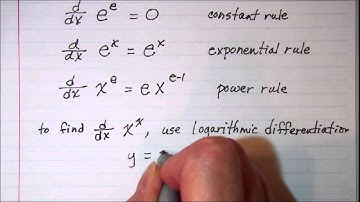 d/dx e^e = 0 constant rule
d/dx e^x = e^x exponential rule
d/dx x^e = e x^(e-1) power rule
to find d/dx x^x, use logarithmic differentiation
y =